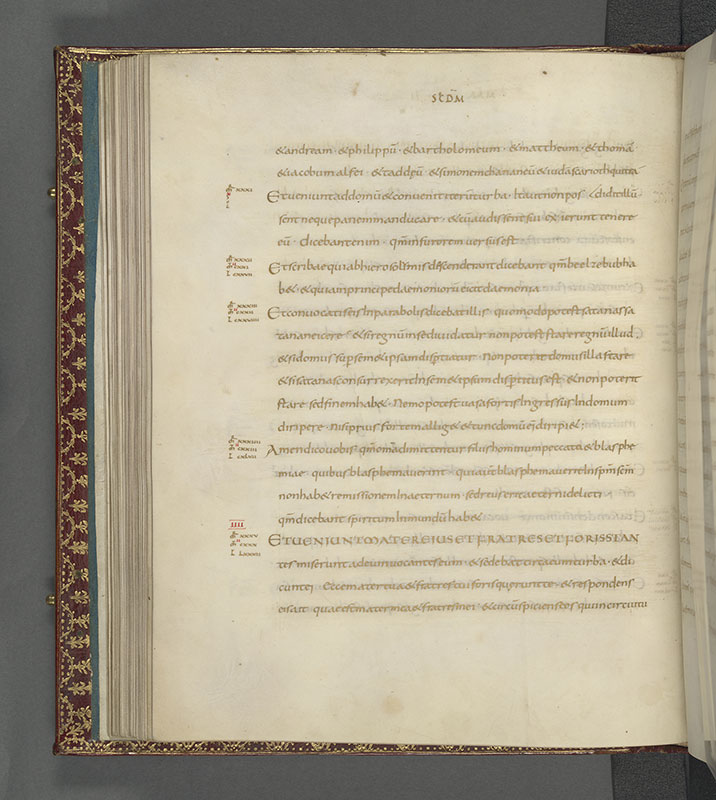 SCDM
& andream · & philippū · & bartholomeum · & mattheum · & thomā
& iacobum alfei · & taddeū · & simonem chananeū & iudascarioth qui tra
Et ueniunt ad domū & conuenit iterū turba · Ita ut non pos
sent neque panem manducare · & cū audissent sui exierunt tenere
eū · dicebant enim · qm̄ in furorem uersus est
Et scribae qui ab hierosolimis descenderant dicebant qm̄ beelzebub ha
b& · & quia in principe daemoniorū eicit daemonia
Et conuocatis eis In parabolis dicebat illis quomodo potest satanas sa
tanan eicere & si regnū in se diuidatur non potest stare regnū illud ·
& si domus sup sem& ipsam disptiatur · Non poterit domus illa stare
& si satanas consurrexerit In sem& ipsum disptitus est & non poterit
stare sed finem hab& · Nemo potest uasa fortis Ingressus In domum
diripere · nisi prius fortem allig& & tunc domū ei diripi&;
Amen dico uobis qm̄ omā dimittentur filiis hominum peccata & blasphe
miae quibus blasphemauerint · qui aut blasphemauerit In spm̄ scm̄
non hab& remissionem In aeternum · sed reus erit aeterni delicti ·
qm̄ dicebant spiritum Inmundū hab&
IIII
ET UENIUNT MATER EIUS ET FRATRES ET FORIS STAN
tes miserunt ad eum uocantes eum & sedebat circa eum turba · & di
cunt ei Ecce mater tua & fratres tui foris querunt te · & respondens
eis ait quae est mater mea & fratres mei · & circūspiciens eos qui in circuitu